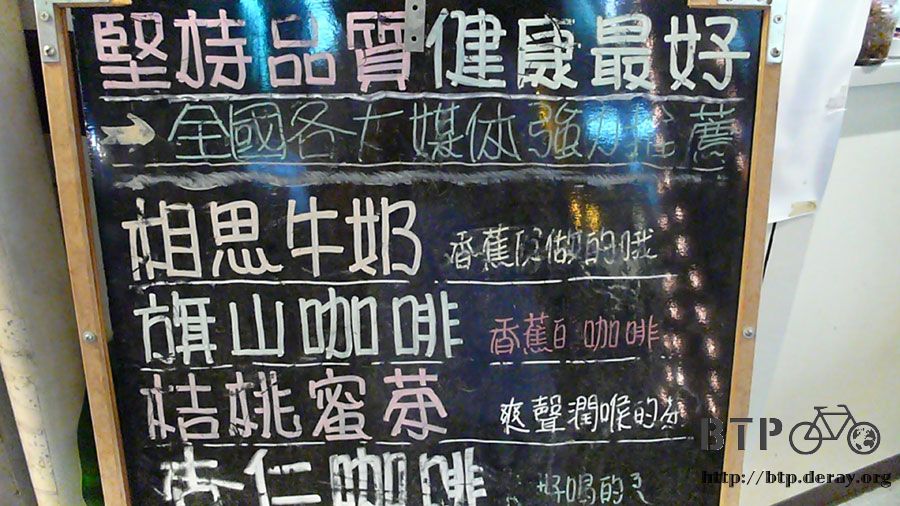 堅持品質健康最好
全國各大媒体強力推薦
相思牛奶 香蕉所做的哦
旗山咖啡 香蕉的咖啡
桔姚蜜茶 爽聲潤喉的
杏仁咖啡 好喝的
BTP
http://btp.deray.org